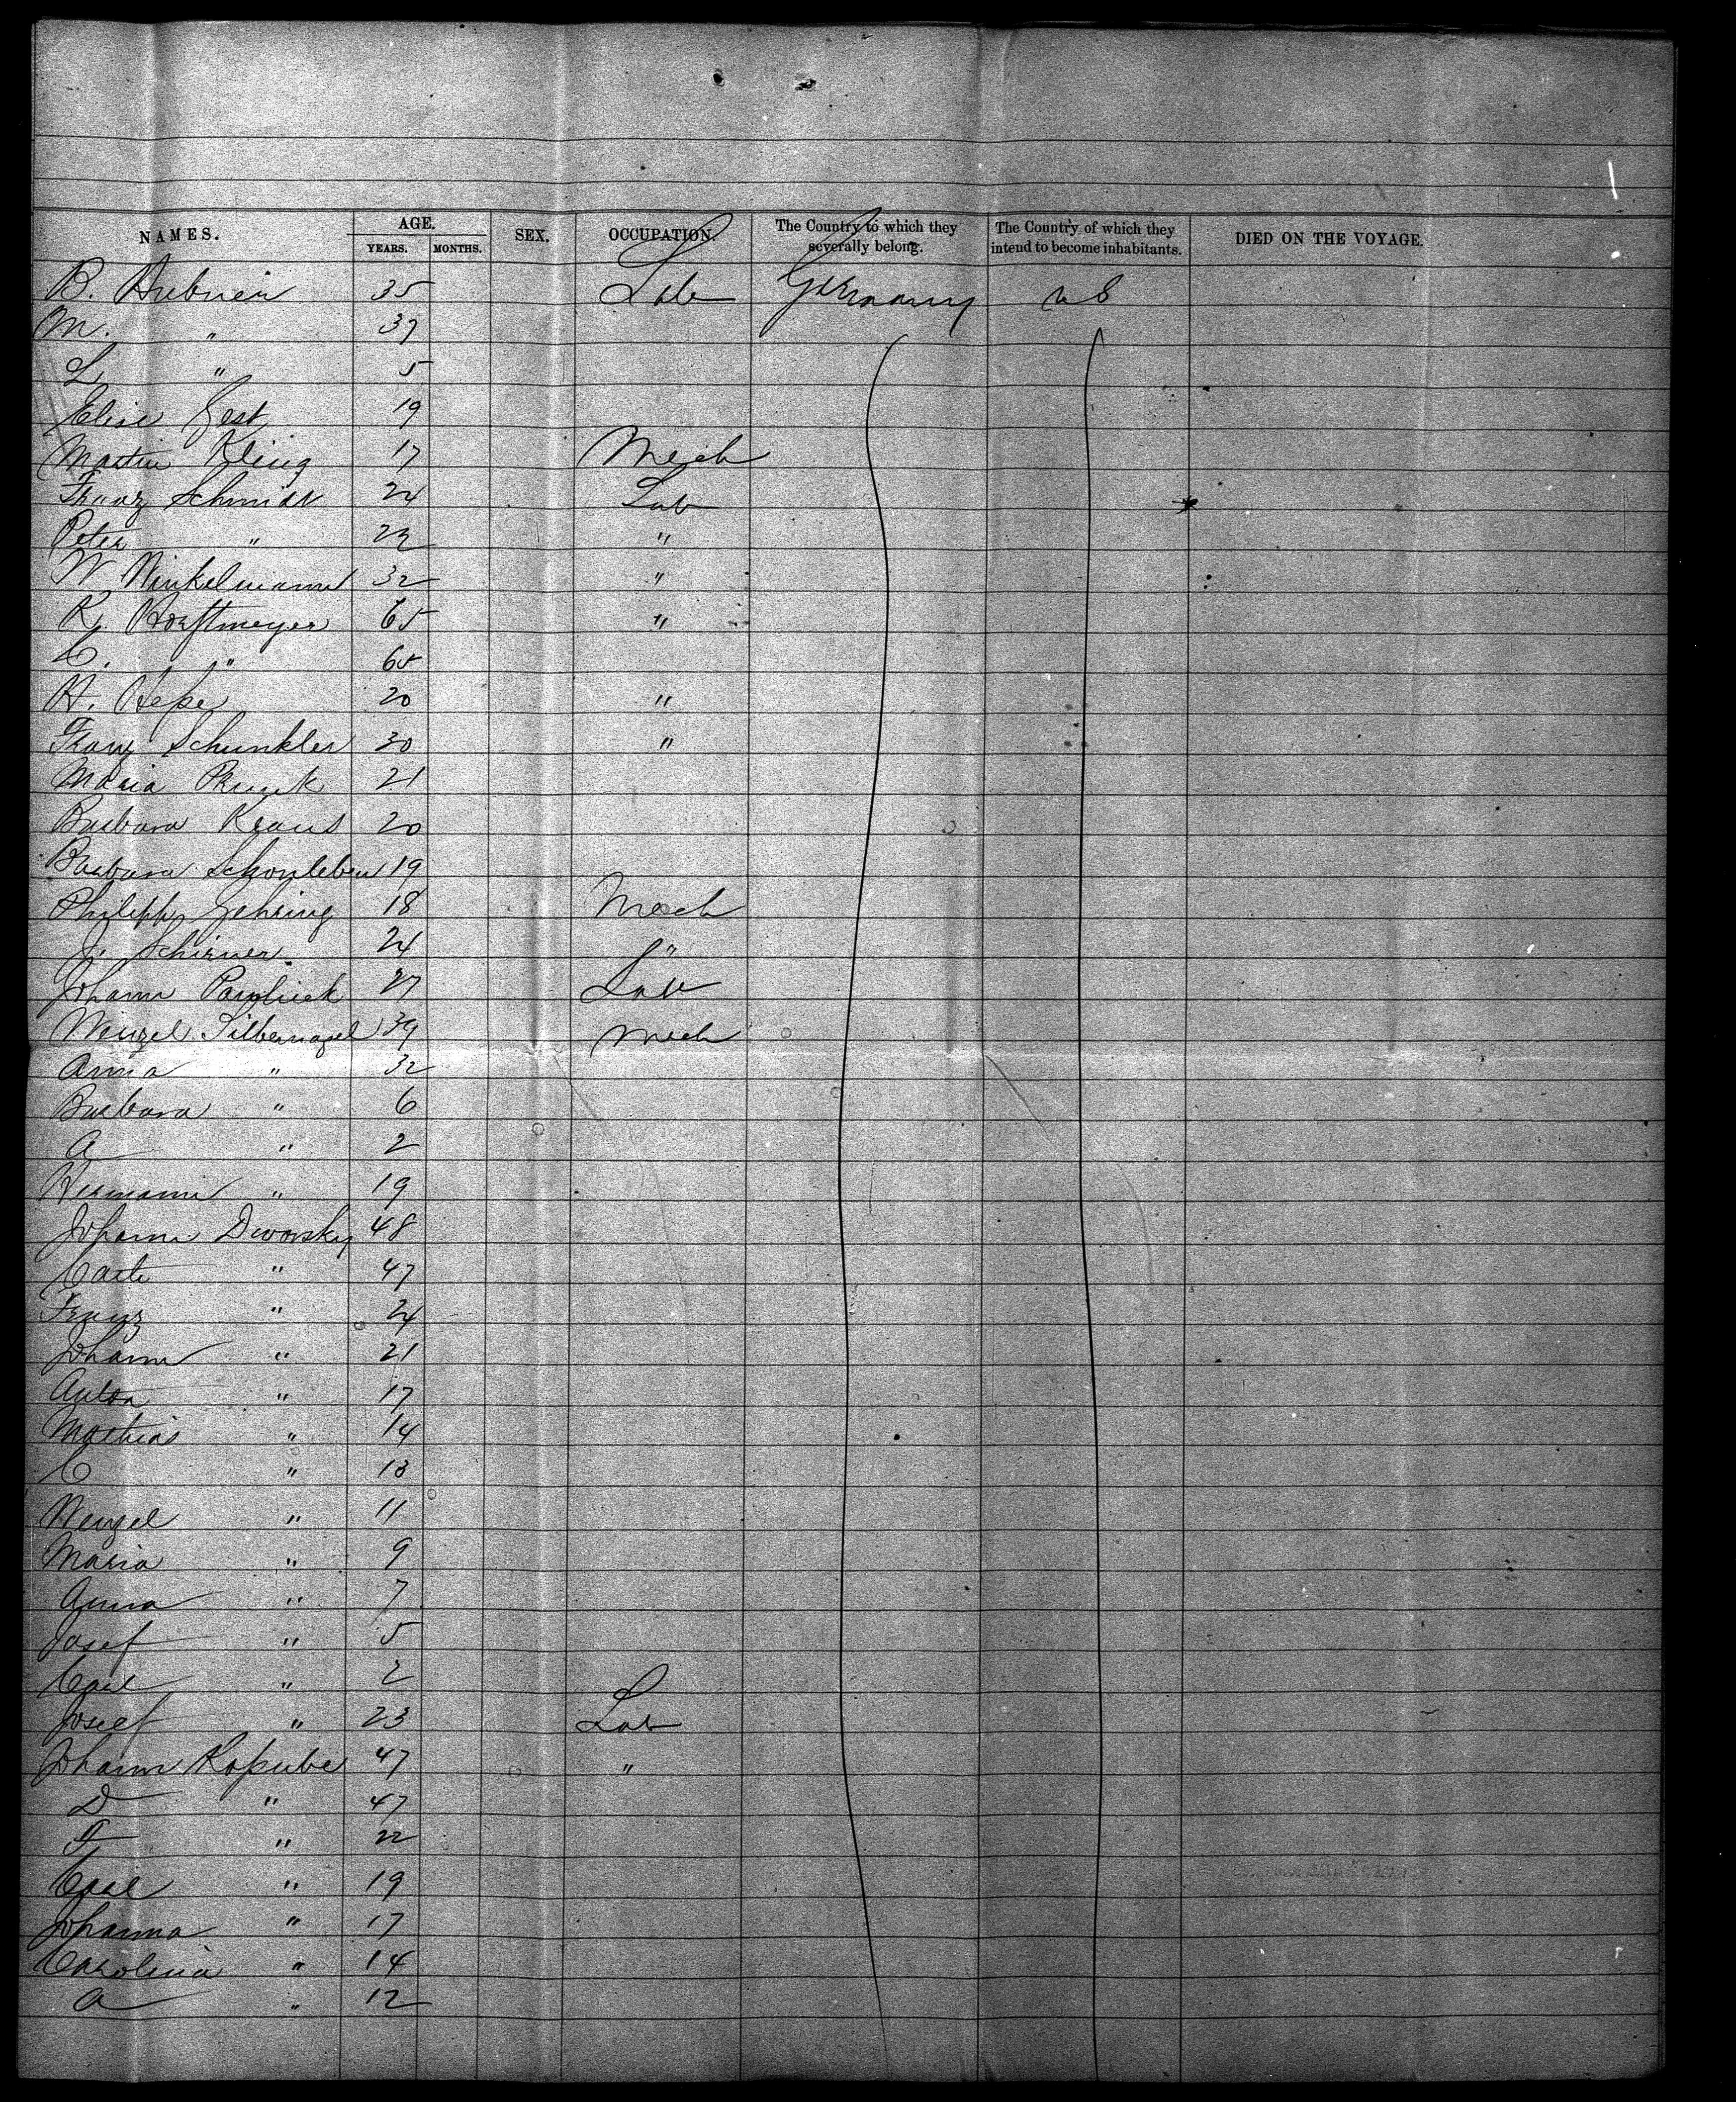 NAMES. AGE. YEARS. MONTHS. SEX. OCCUPATION. The Country to which they severally belong. The Country of which they intend to become inhabitants. DIED ON THE VOYAGE.
B. Hubner 35 Lab Germany US
M. " 37
L " 5
Elise 19
Martin Kling 17 Mech
Franz Schmidt 24 Lab
Peter " 23 "
W Winkelmann 32 "
K. Hoeftmeyer 65 "
C. " 65
H. Hesse 20 "
Franz Schunkler 30 "
Maria 21
Barbara Kraus 20
Barbara Schonleben 19
Philipp Gehring 18 Mech
J. Schirner 24 "
Johann 27 Lab
Wenzel Silbernagel 39 Mech
Anna " 32
Barbara " 6
A " 2
Hermann " 19
Johann Dworsky 48
" 47
Franz " 24
Johann " 21
Anton " 17
Mathias " 14
C " 13
Wenzel " 11
Maria " 9
Anna " 7
Josef " 5
Carl " 2
Josef " 23 Lab
Johann 47 "
D " 47
F " 22
Carl " 19
Johanna " 17
Carolina " 14
A " 12